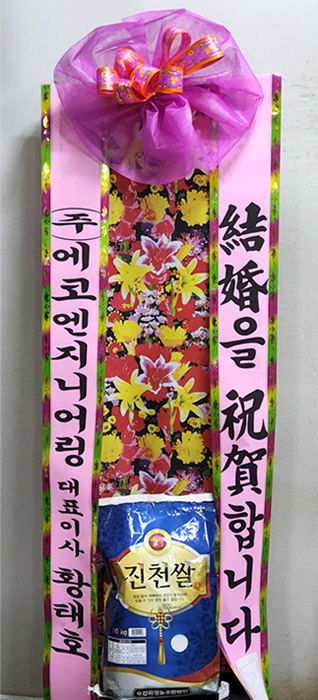 結婚을 祝賀합니다
(주)에코엔지니어링 대표이사 황태호
진천쌀
10kg